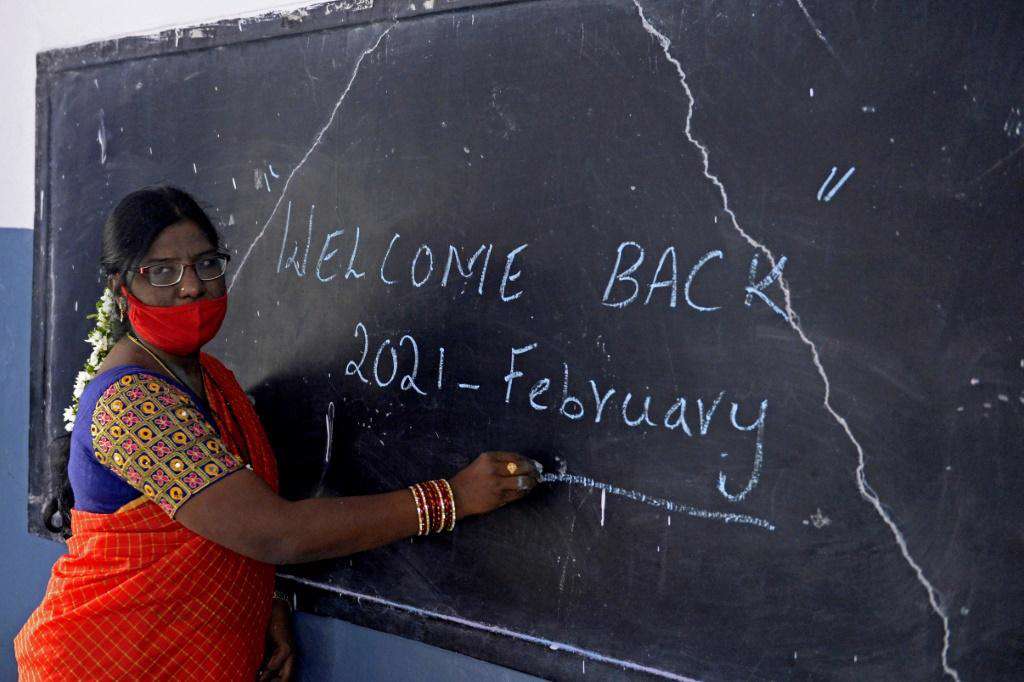 "WELCOME BACK"
2021-February